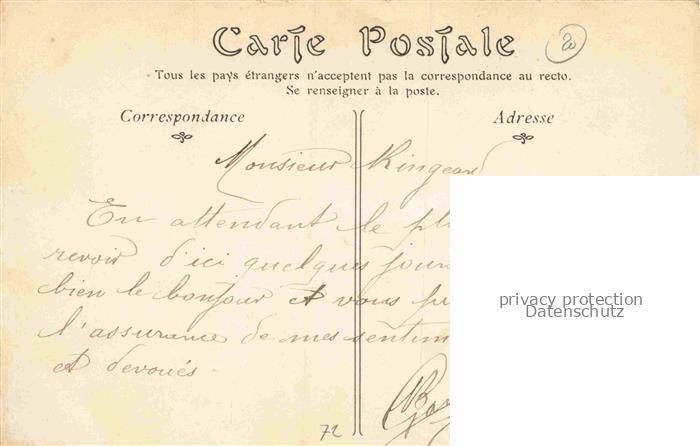 Carte Postale
20
Tous les pays étrangers n'acceptent pas la correspondance au recto.
Se renseigner à la poste.
Correspondance
Adresse
Monsieur
En attendant le pl
revoir d'ici quelques jours
bien le bonjour et vous
l'assurance de mes sentim
et devoués
72
privacy protection
Datenschutz